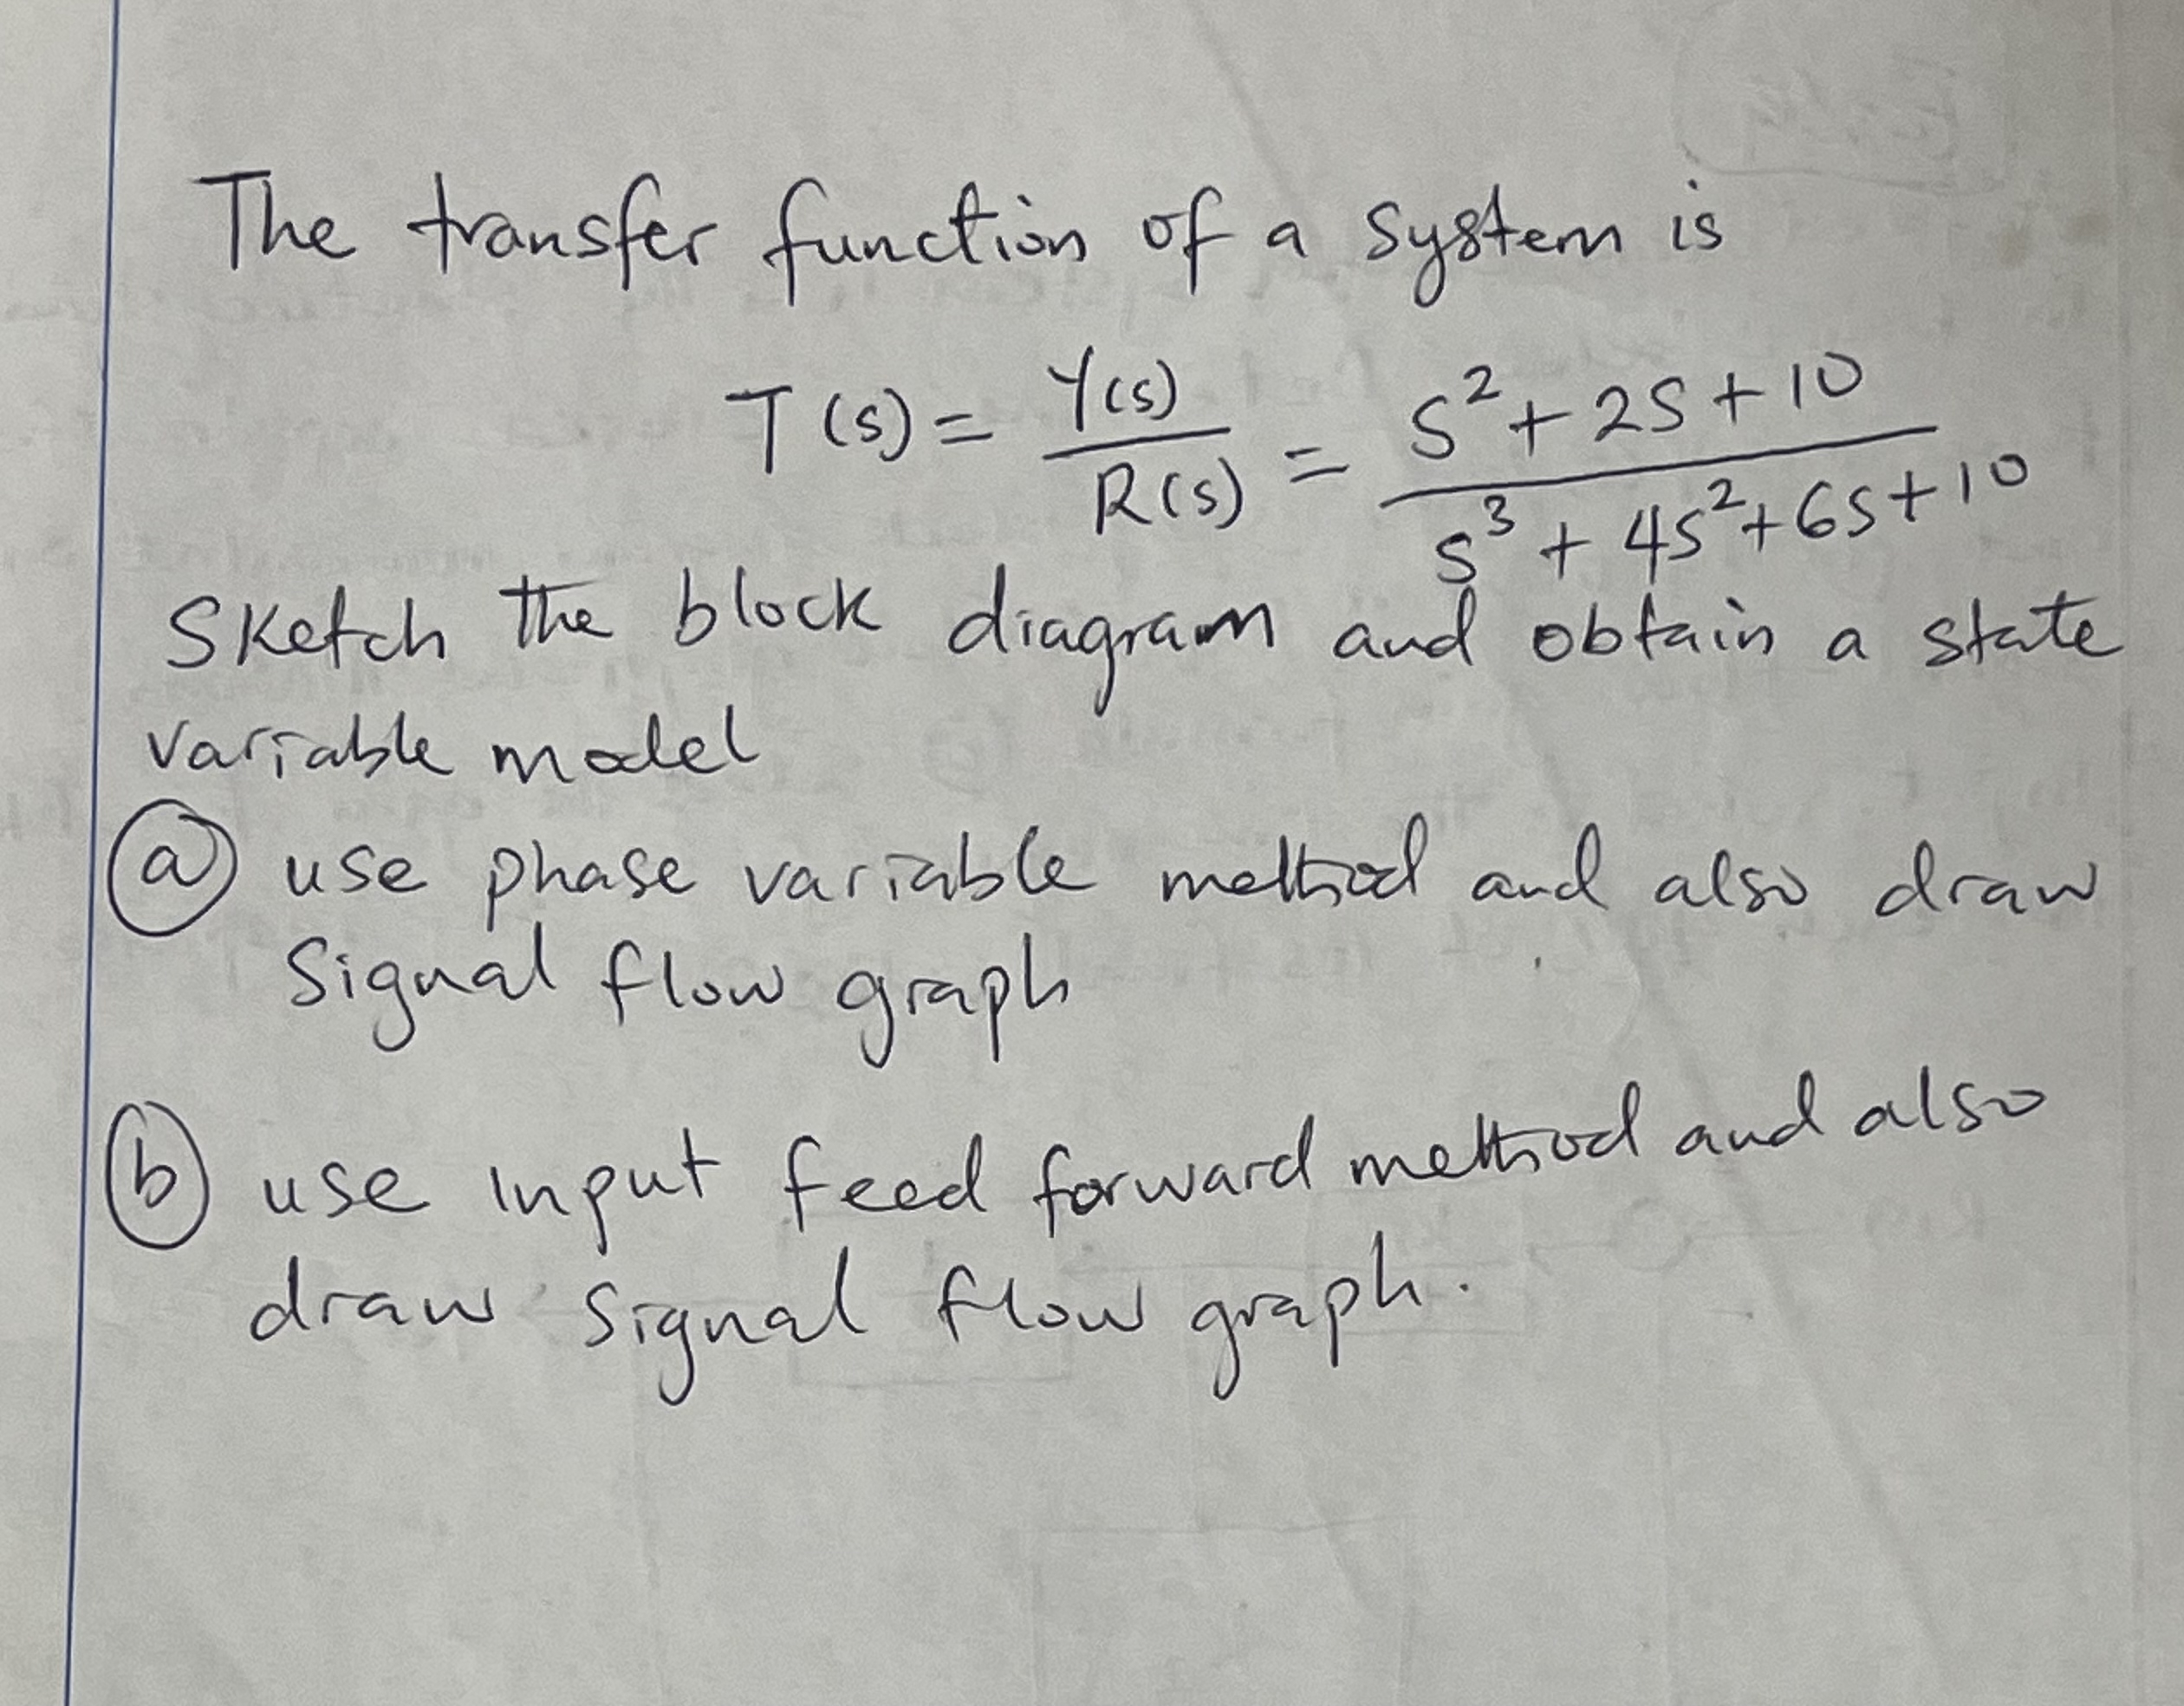 The transfer function of a system is
T(s) = Y(s)/R(s) = s²+2s+10/s³+4s²+6s+10
Sketch the block diagram and obtain a state
variable model
(a) use phase variable method and also draw
Signal flow graph
(b) use input feed forward method and also
draw signal flow graph.